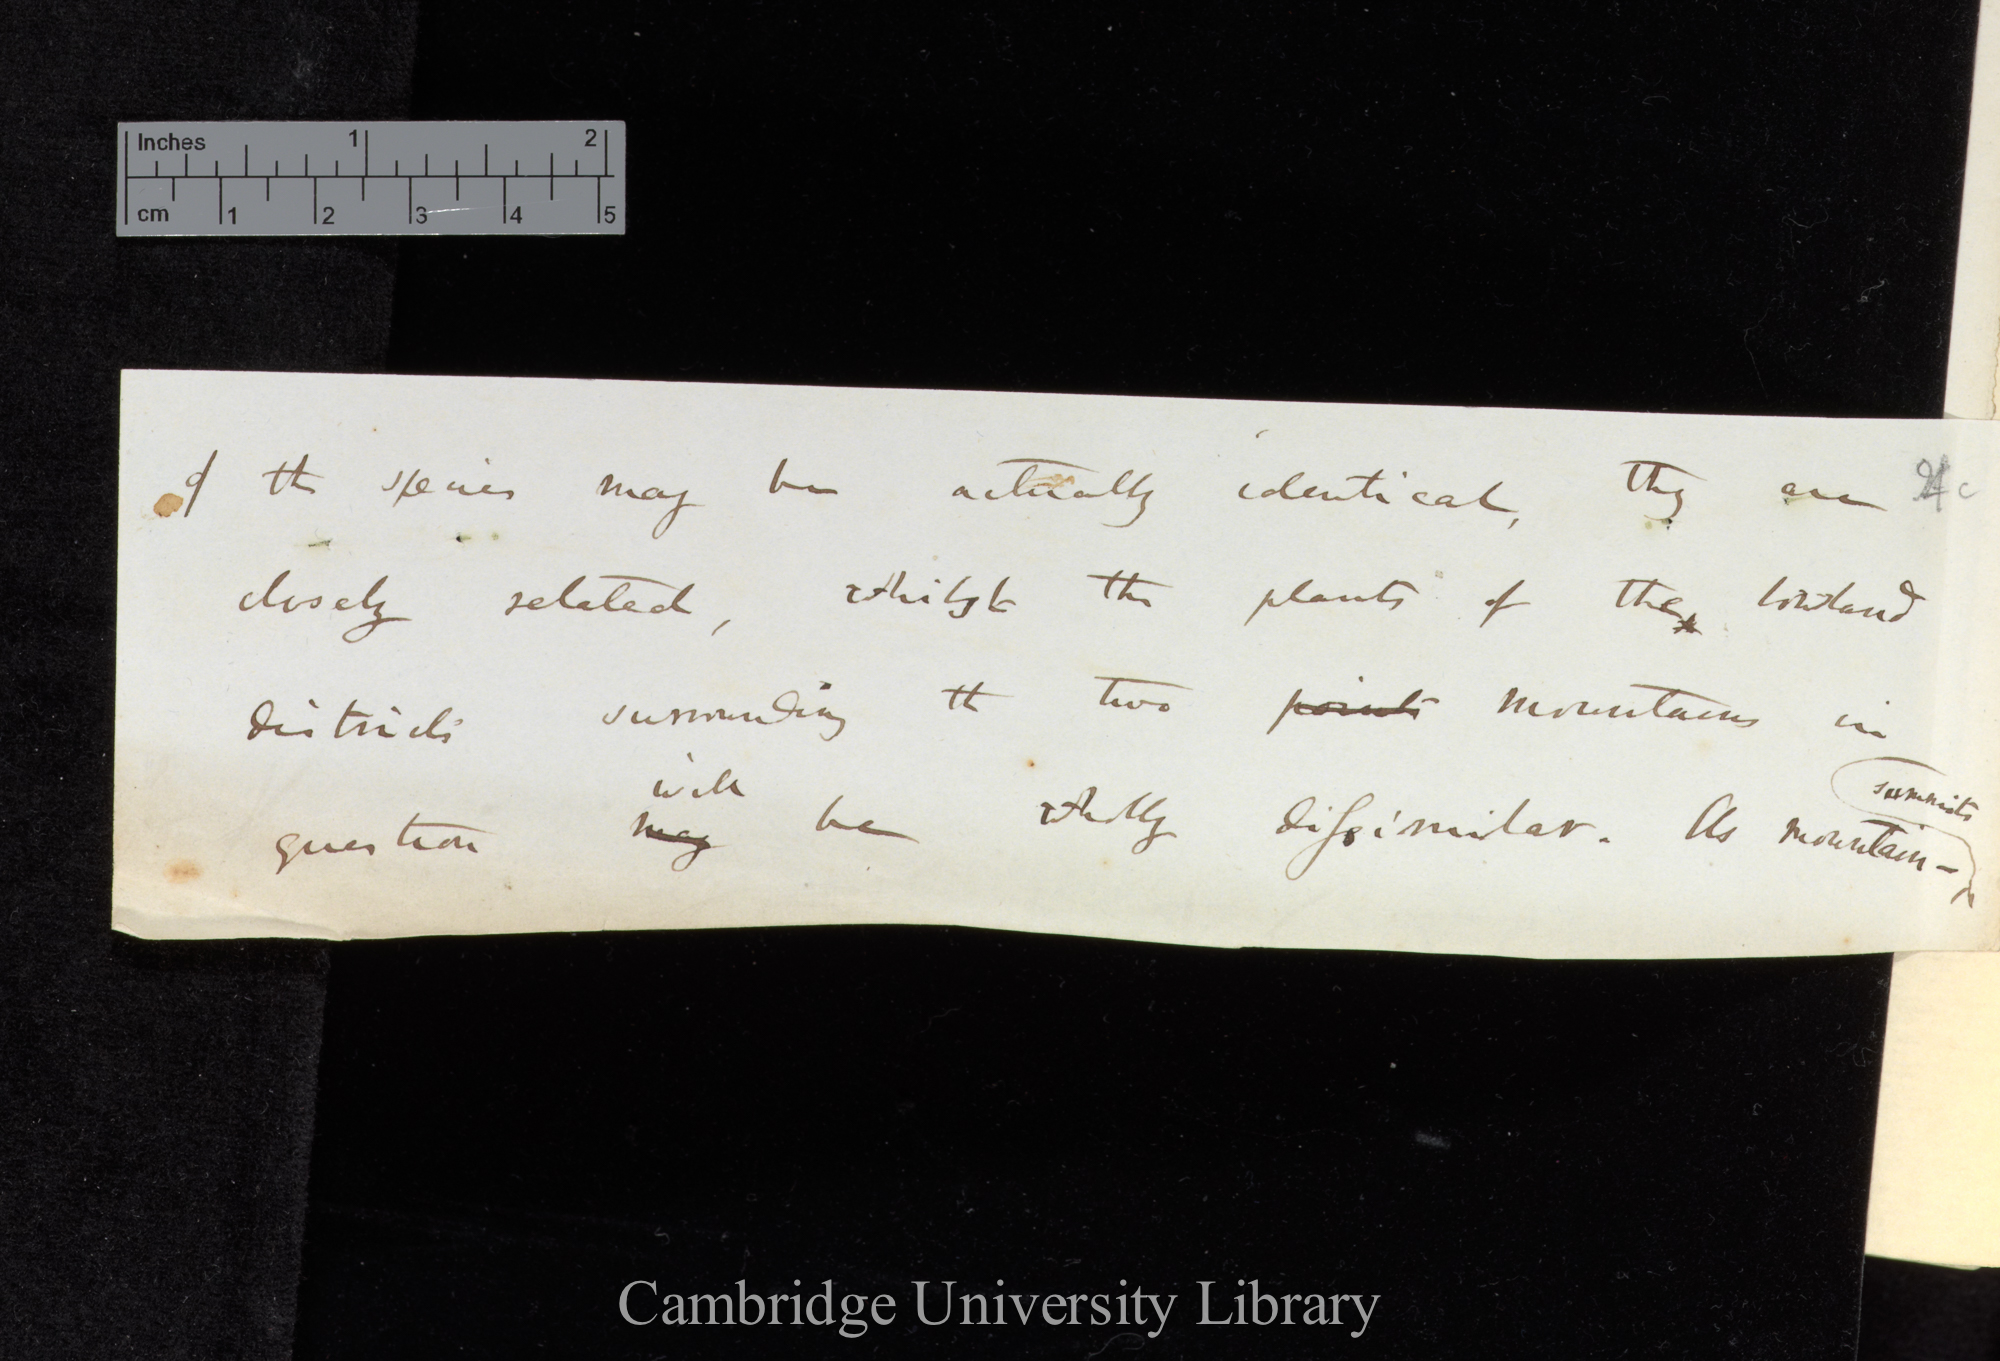 Inches 1 2
cm 1 2 3 4 5
of the species may be actually identical, they are
closely related, whilst the plants of the lowland
districts surrounding the two points mountains in
will summits
question may be wholly dissimilar. As mountain-
Cambridge University Library